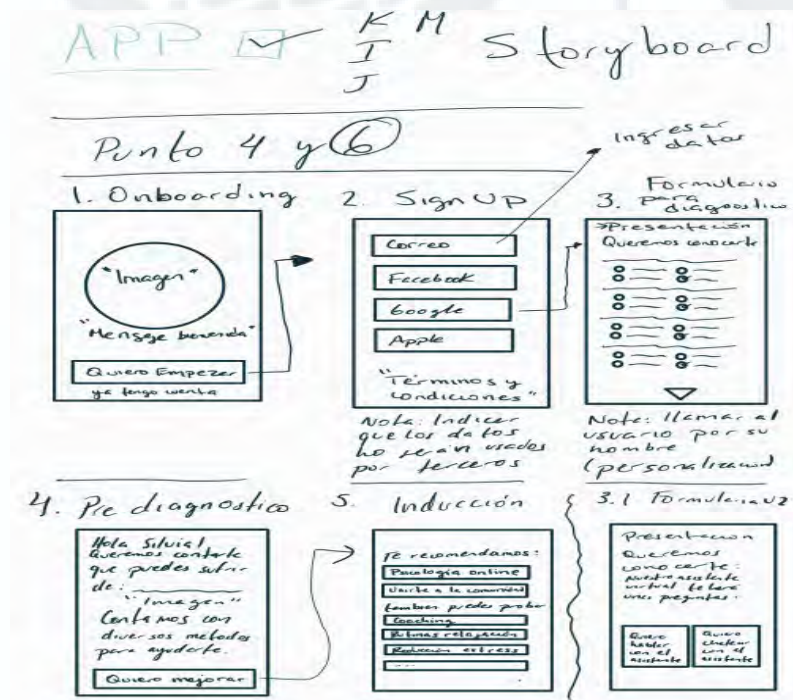 APP
K M
I
J
Storyboard
Punto 4 y 6
Ingresar
datos
1. Onboarding
"Imagen"
"Mensaje bienvenida"
Quiero Empezar
ya tengo cuenta
2. Sign Up
Correo
Facebook
Google
Apple
"Términos y
condiciones"
Nota: Indicar
que los datos
no serán usados
por terceros
3. Formulario
para
diagnostico
>Presentación
Queremos conocerte
Nota: llamar al
usuario por su
nombre
(personalización
4. Pre diagnostico
Hola Silvia!
Queremos contarte
que puedes sufrir
de:
"Imagen"
Contamos con
diversos metodos
para ayudarte.
Quiero mejorar
5. Inducción
Te recomendamos:
Psicología online
Unirte a la comunidad
tambien puedes probar
Coaching
Rutinas relajación
Reducción estress
....
3.1 Formulario V2
Presentacion
Queremos
conocerte:
Nuestro asistente
virtual te hará
unas preguntas:
Quiero
hablar
con el
asistente
Quiero
chatear
con el
asistente